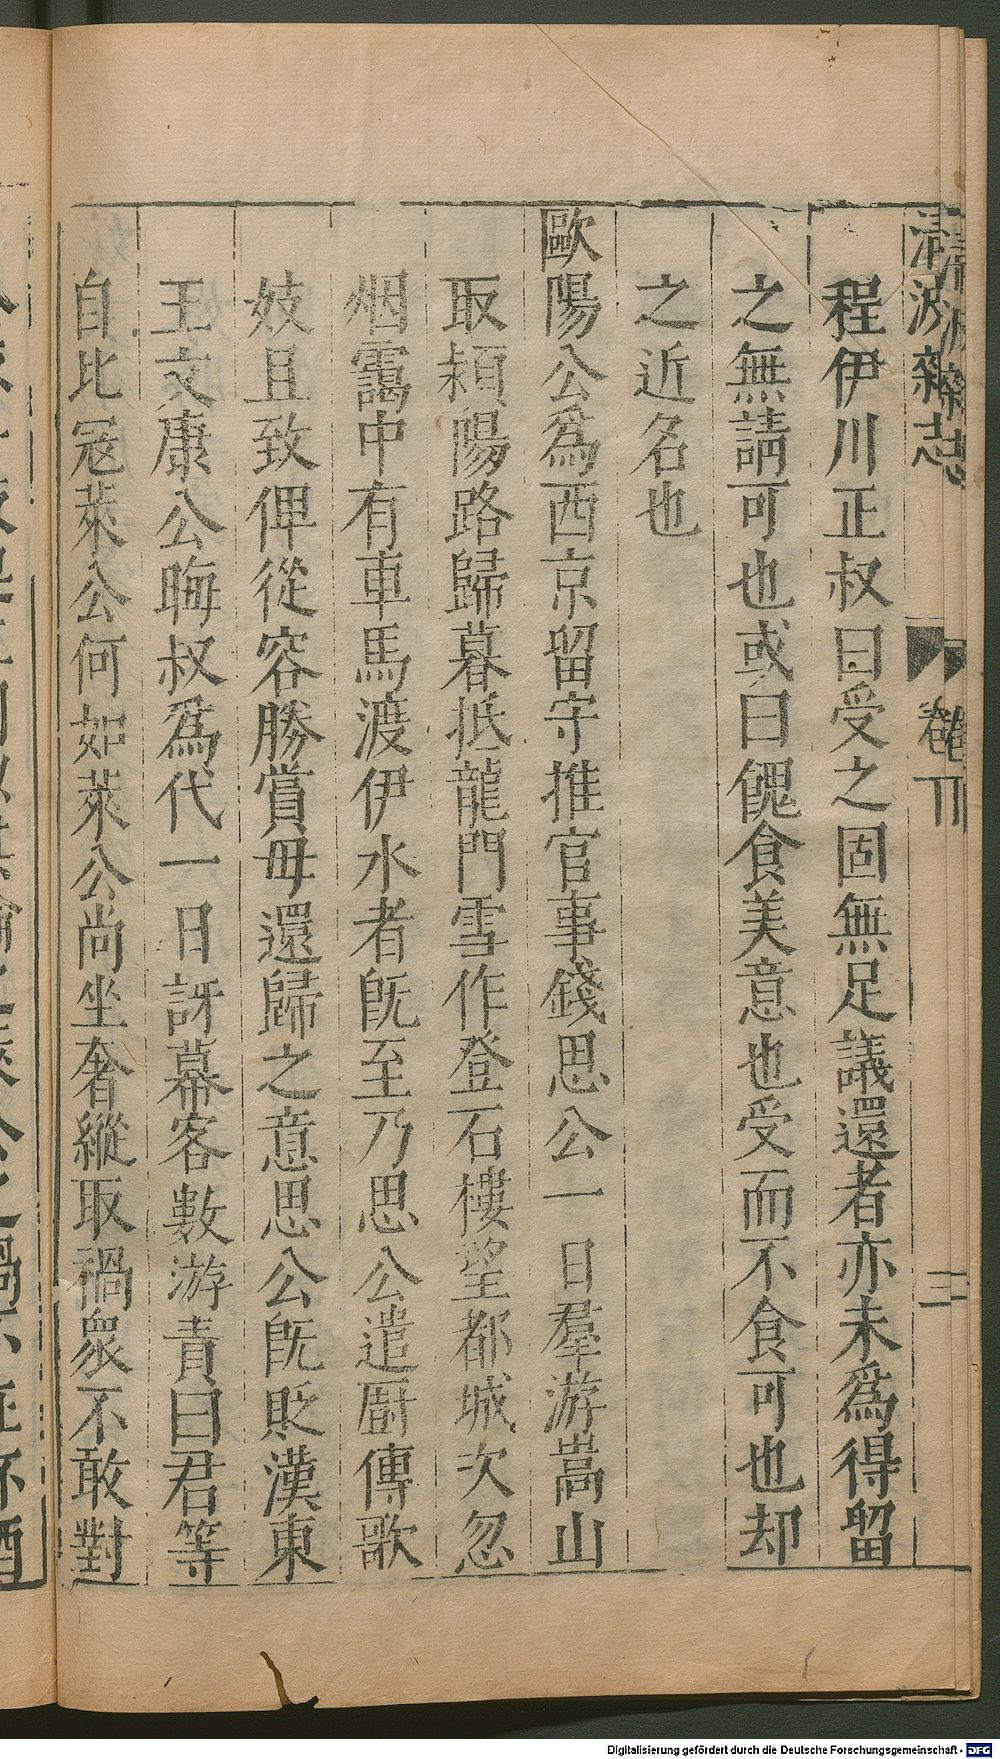 清波雜志 卷 三
程伊川正叔曰受之固無足議還者亦未爲得留
之無請可也或曰餽食美意也受而不食可也却
之近名也
歐陽公爲西京留守推官事錢思公一日羣游嵩山
取潁陽路歸暮抵龍門雪作登石樓望都城次忽
烟靄中有車馬渡伊水者旣至乃思公遣厨傳歌
妓且致俾從容勝賞毋還歸之意思公旣貶漢東
王文康公晦叔爲代一日訝幕客數游責曰君等
自比冦萊公何如萊公尚坐奢縱取禍衆不敢對
Digitalisierung gefördert durch die Deutsche Forschungsgemeinschaft - DFG